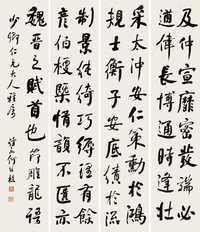 及仲宣靡密發端必
遒偉長博通時逢壯
采太沖安仁策勳於鴻
規士衡子安底績於流
制景純綺巧縟理有餘
彥伯梗概情韻不匱亦
魏晉之賦首也 節雕龍語
少衡仁兄大人雅屬 何維樸